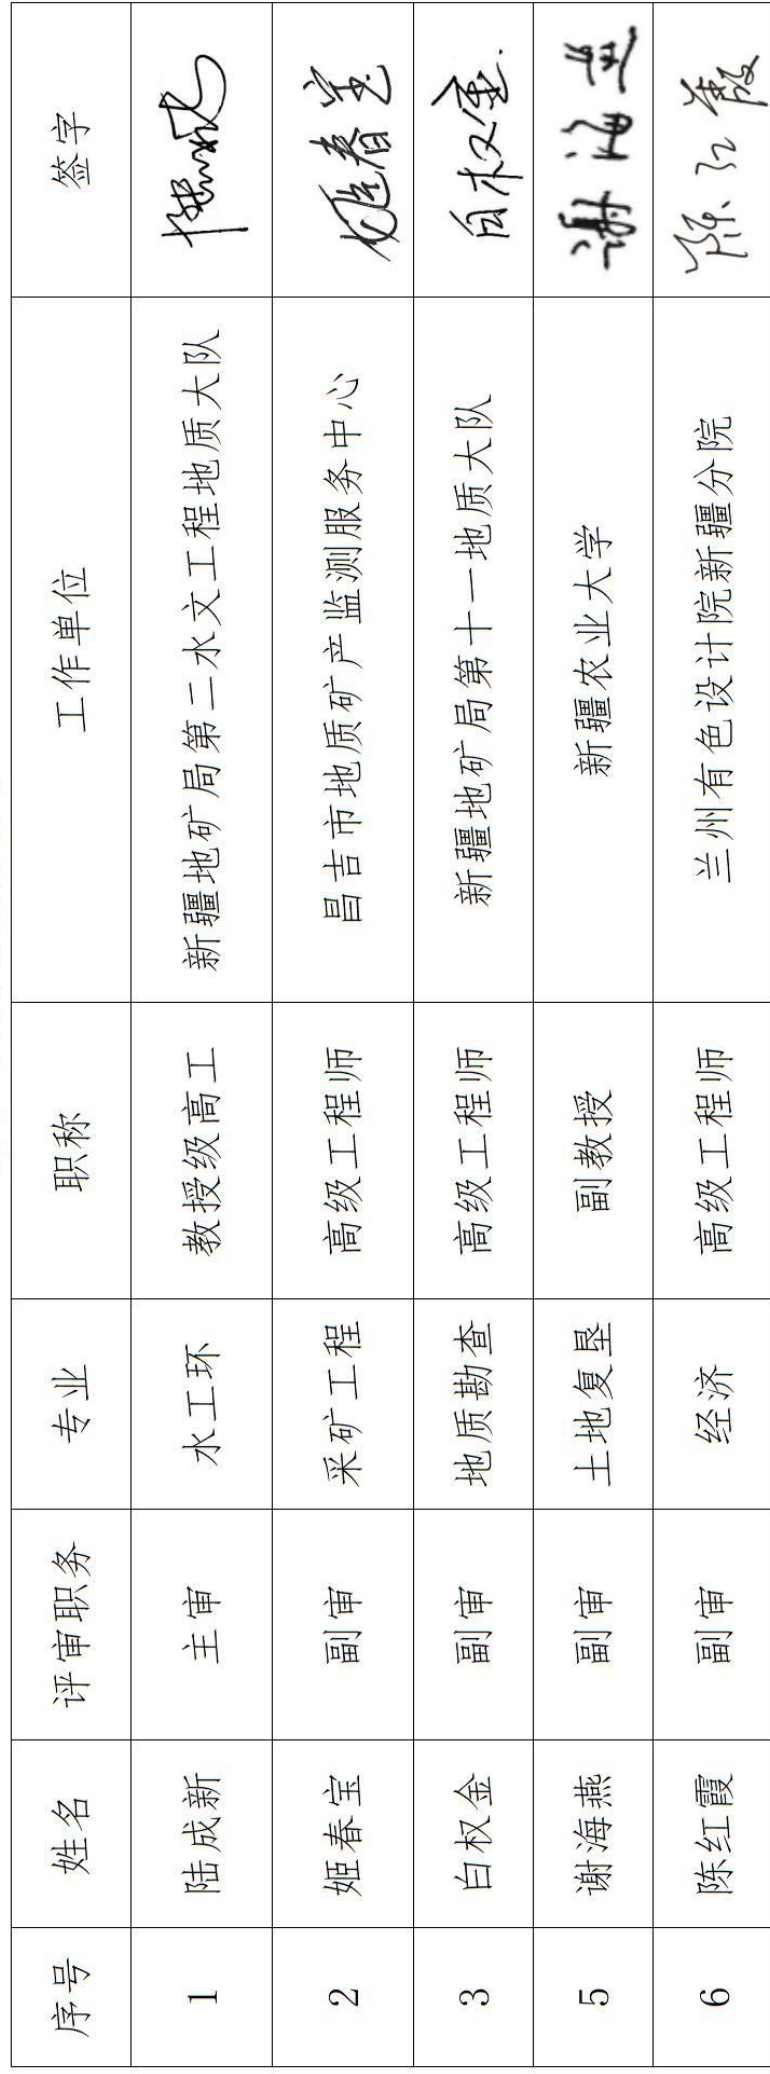 序号 姓名 评审职务 专业 职称 工作单位 签字
1 陆成新 主审 水工环 教授级高工 新疆地矿局第二水文工程地质大队
2 姬春宝 副审 采矿工程 高级工程师 昌吉市地质矿产监测服务中心 姬春宝
3 白权金 副审 地质勘查 高级工程师 新疆地矿局第十一地质大队 白权金
5 谢海燕 副审 土地复垦 副教授 新疆农业大学 谢海
6 陈红霞 副审 经济 高级工程师 兰州有色设计院新疆分院 陈红霞